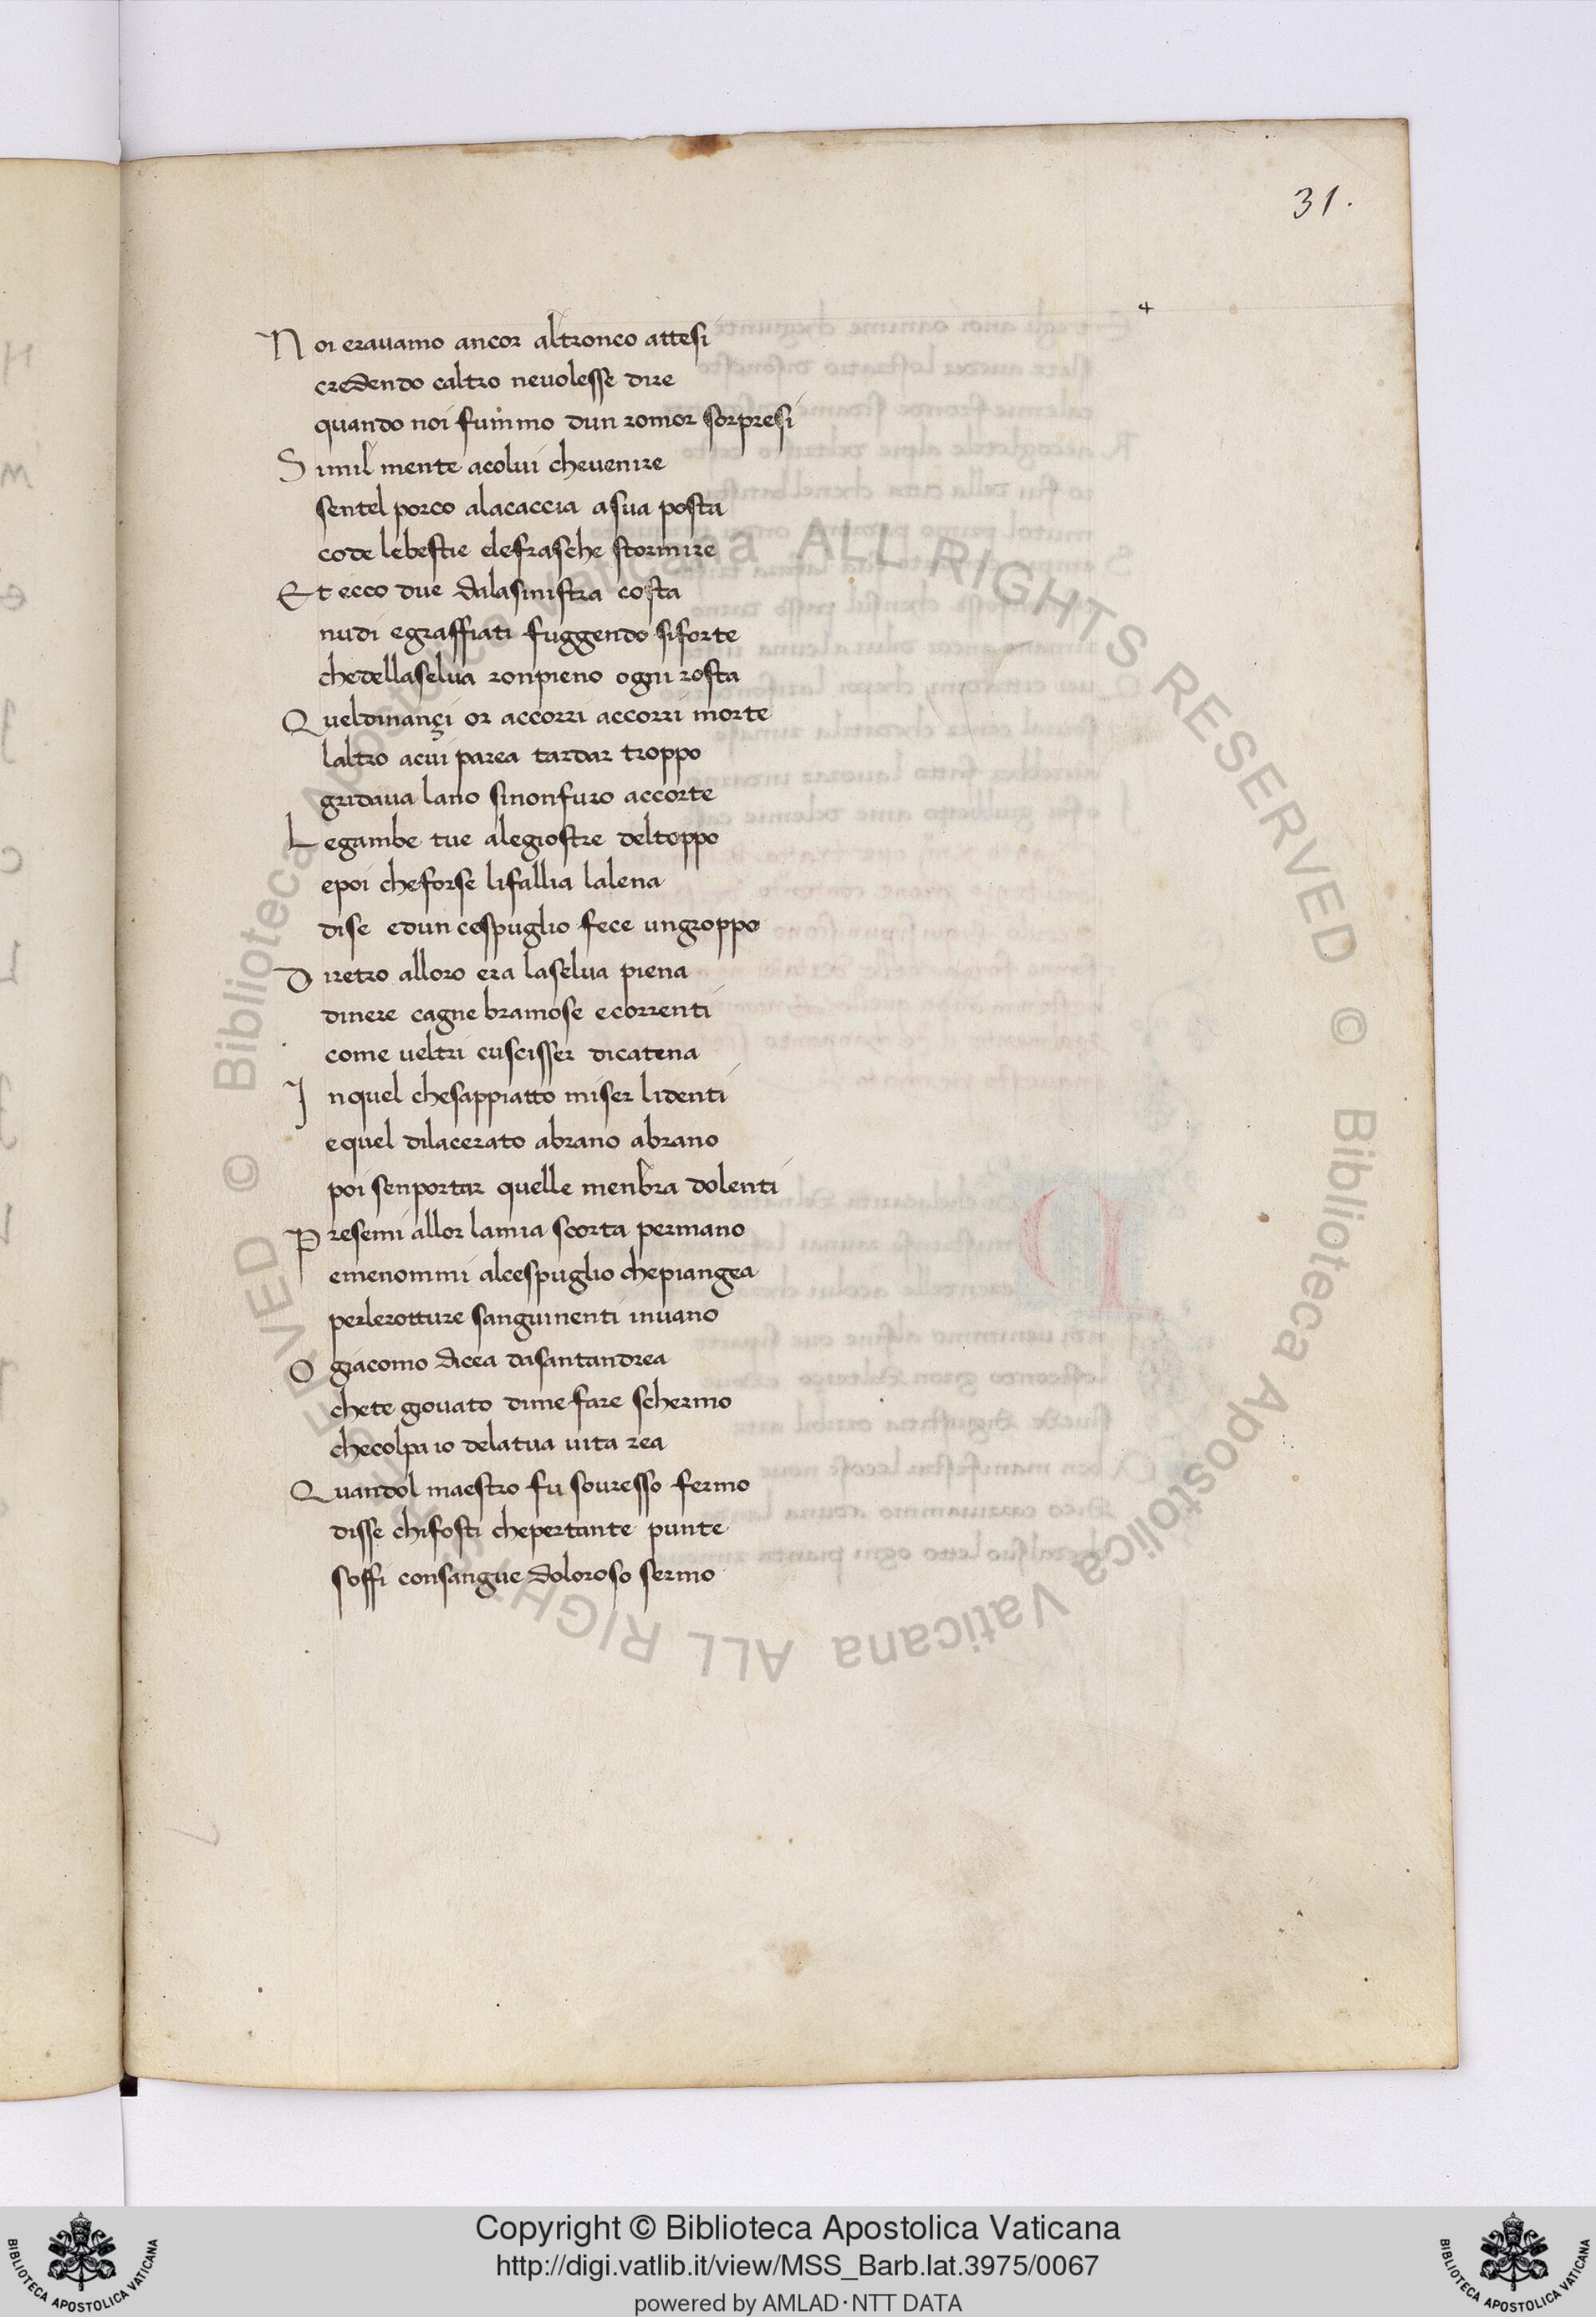 31.
N oi erauamo ancor altronco attesi
credendo caltro neuolesse dire
quando noi fuinmo dun romor sorpresi
S imil mente acolui cheuenire
sentel porco alacaccia asua posta
code lebestie elefrasche stormire
E t ecco due dalasinistra costa
nudi egraffiati fuggendo siforte
chedellaselua ronpieno ogni rosta
Q ueldinançi or accorri accorri morte
laltro acui parea tardar troppo
gridaua lano sinonfuro accorte
L egambe tue alegiostre deltoppo
epoi cheforse lifallia lalena
dise edun cespuglio fece ungroppo
D iretro alloro era laselua piena
dinere cagne bramose ecorrenti
come ueltri cuscisser dicatena
I nquel chesappiatto miser lidenti
equel dilacerato abrano abrano
poi senportar quelle menbra dolenti
P resemi allor lamia scorta permano
emenommi alcespuglio chepiangea
perlerotture sanguinenti inuano
O giacomo dicea dasantandrea
chete giouato dime fare schermo
checolpa io delatua uita rea
Q uandol maestro fu souresso fermo
disse chifosti chepertante punte
soffi consangue doloroso sermo
© Biblioteca Apostolica Vaticana ALL RIGHTS RESERVED © Biblioteca Apostolica Vaticana ALL RIGHTS RESERVED
Copyright © Biblioteca Apostolica Vaticana
http://digi.vatlib.it/view/MSS_Barb.lat.3975/0067
powered by AMLAD·NTT DATA
BIBLIOTECA APOSTOLICA VATICANA
BIBLIOTECA APOSTOLICA VATICANA